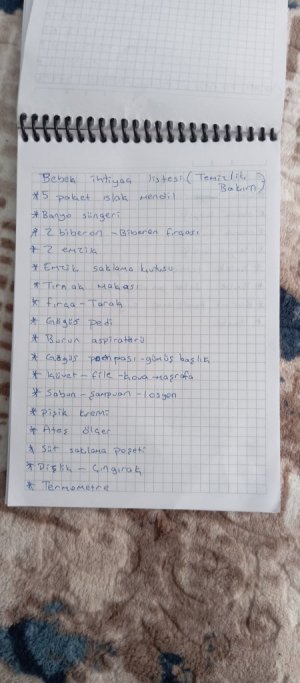 Bebek ihtiyaç listesi (Temizlik
Bakım)
* 5 paket ıslak mendil
* Banyo süngeri
* 2 biberon - Biberon fırçası
* 2 emzik
* Emzik saklama kutusu
* Tırnak Makası
* fırça - Tarak
* Göğüs pedi
* Burun aspiratörü
* Göğüs pompası - gümüş başlık
* Küvet - file - kova - maşrafa
* Sabun - şampuan - losyon
* pişik kremi
* Ateş ölçer
* Süt saklama poşeti
* Dişlik - Çıngırak
* Termometre